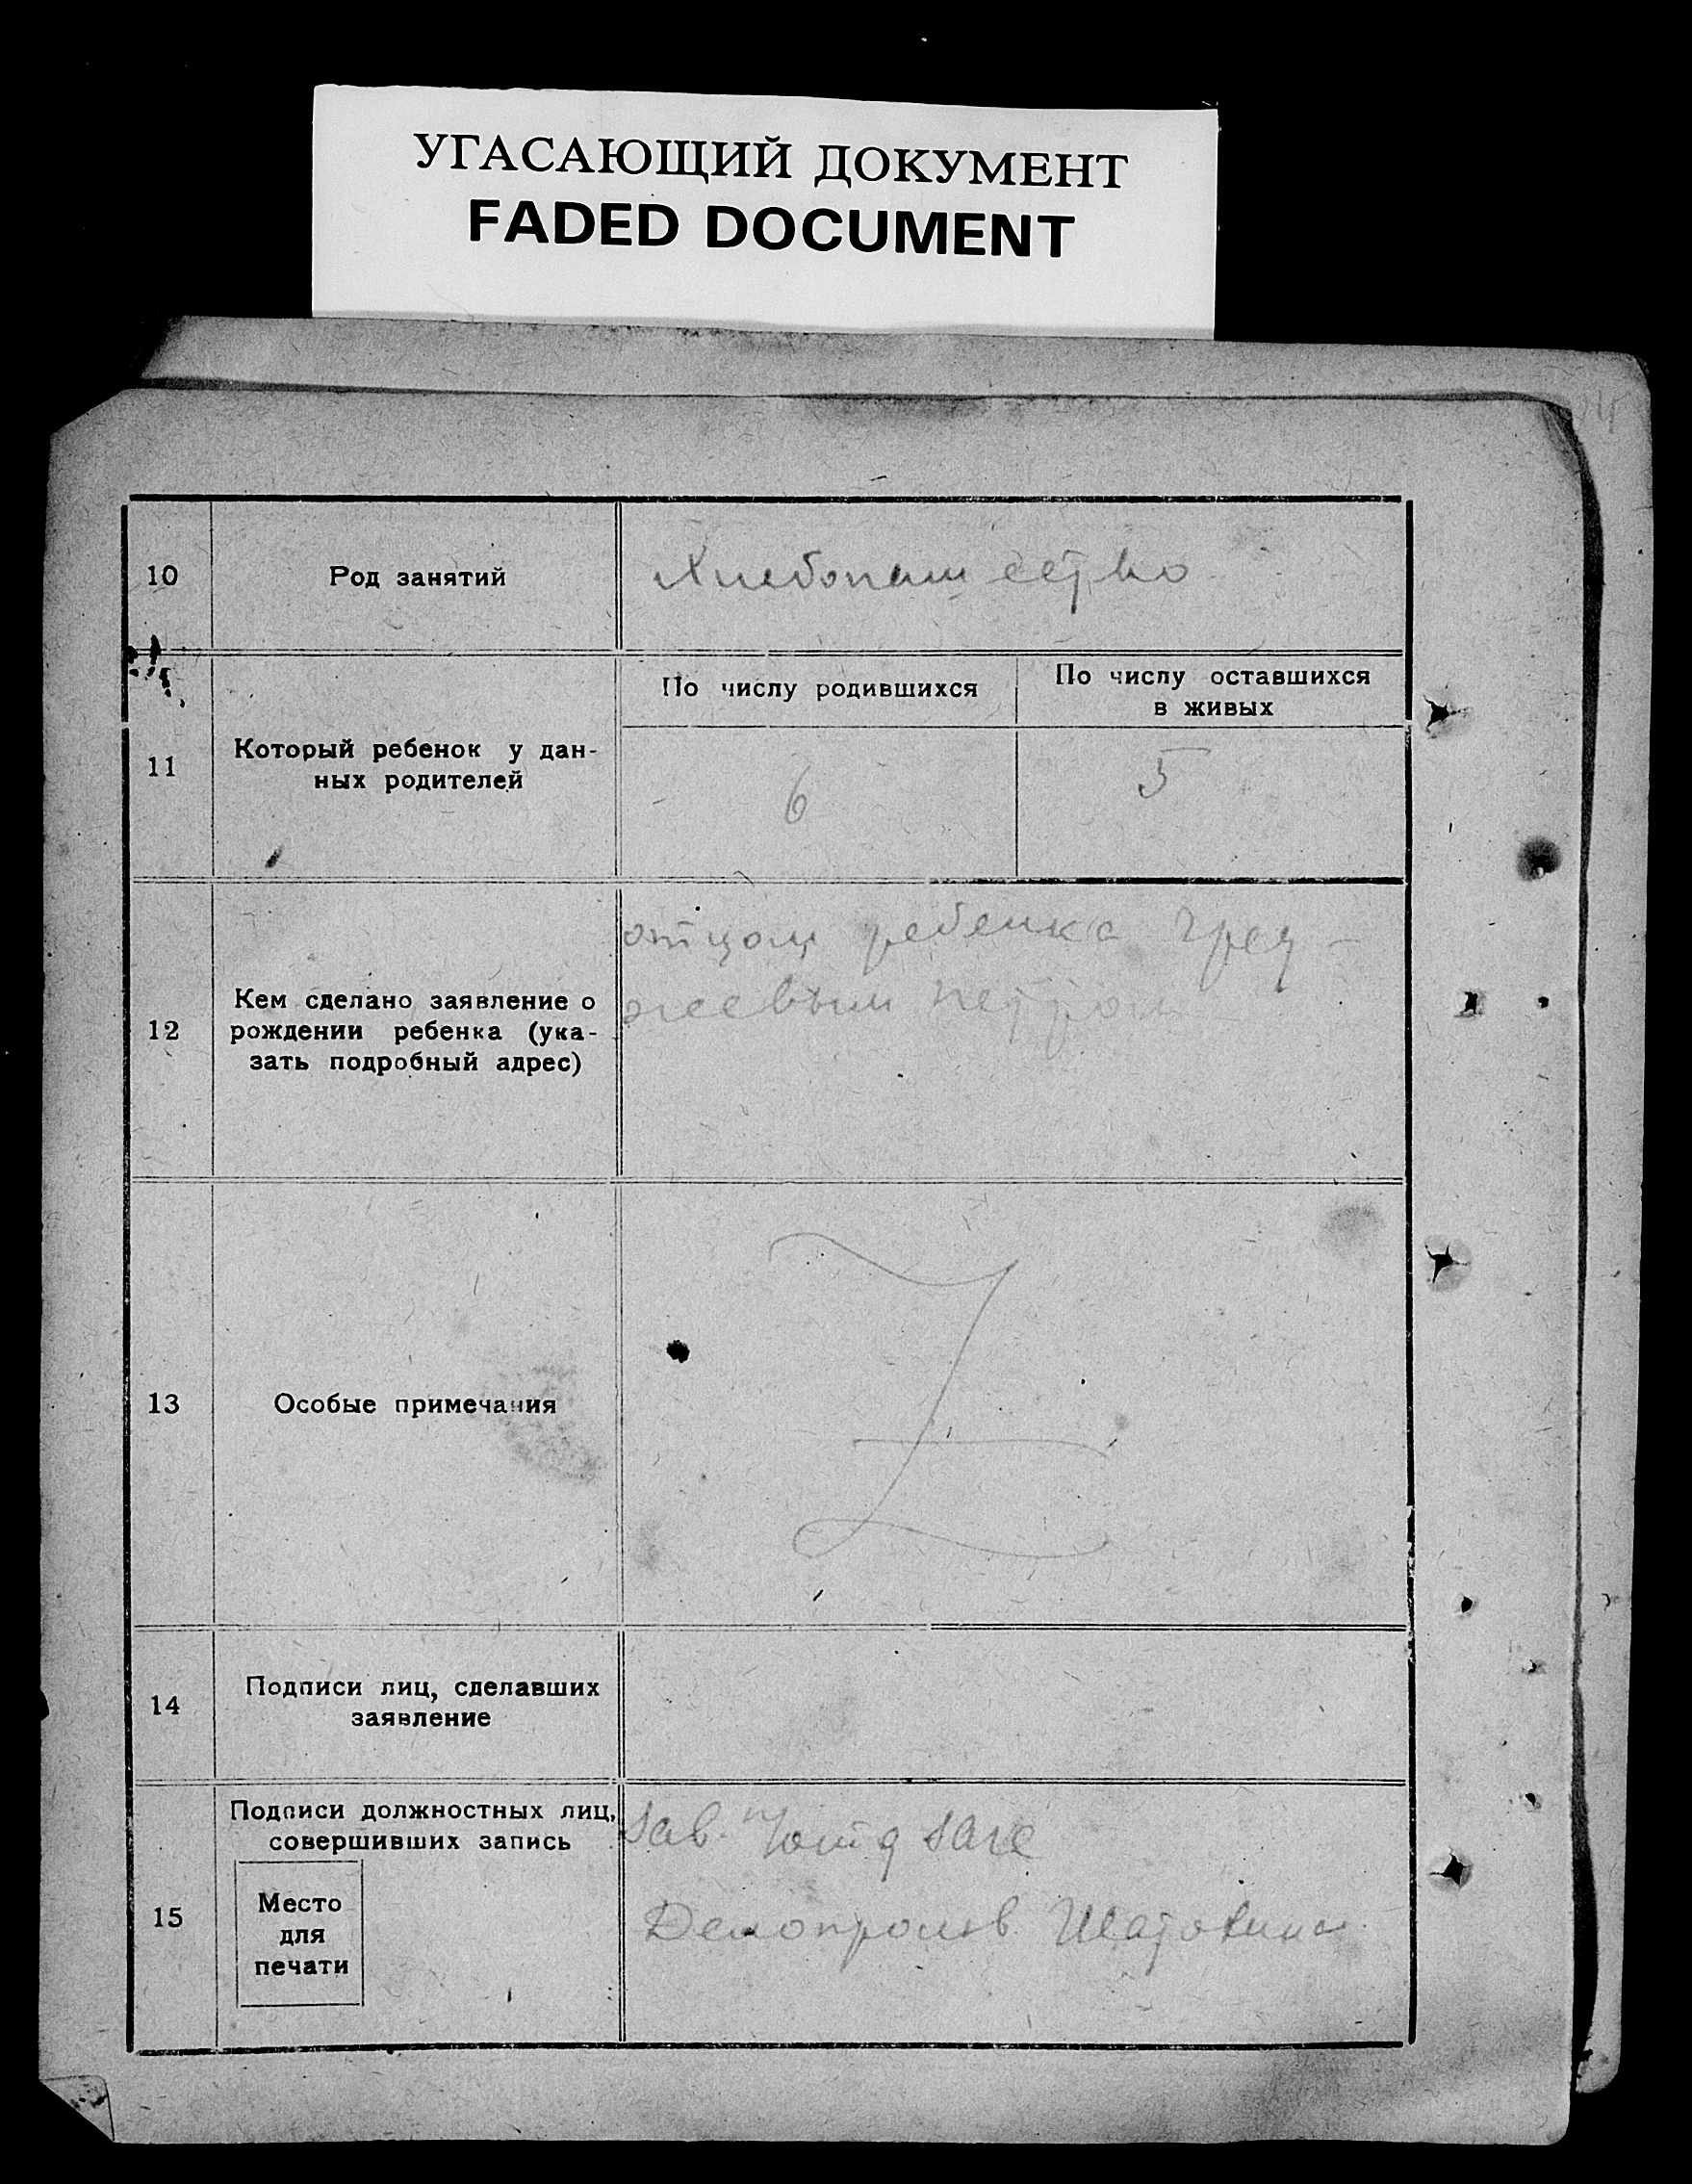 УГАСАЮЩИЙ ДОКУМЕНТ
FADED DOCUMENT
10
Род занятий
Хлебопашество
11
Который ребенок у дан-
ных родителей
По числу родившихся
По числу оставшихся
в живых
6
5
12
Кем сделано заявление о
рождении ребенка (ука-
зать подробный адрес)
отцом ребенка
Петром
13
Особые примечания
14
Подписи лиц, сделавших
заявление
15
Подписи должностных лиц,
совершивших запись
Место
для
печати
Зав.
Делопроизв.